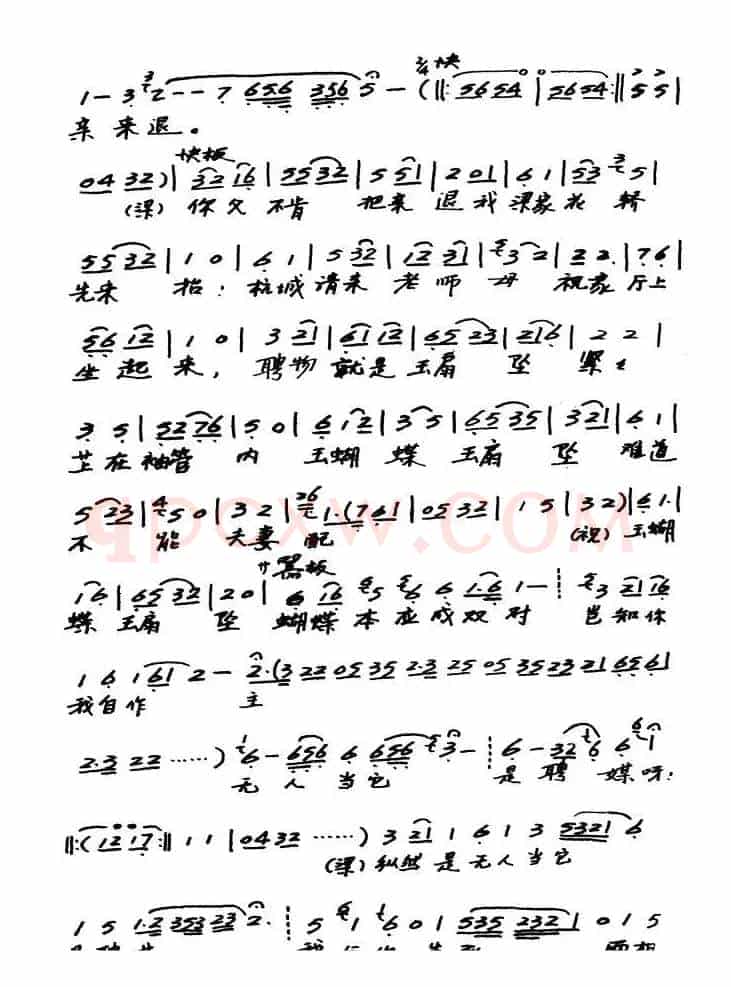 1 – 3 2 – – 7 656 356 5 – ( 2/4 快 ‖: 5654 | 5654 :‖ 5 5 |
亲来退。
快板
04 32) | 32 16 | 55 32 | 5 51 | 2 01 | 6 1 | 53 5 |
(梁)你父不肯 把亲退我梁家花轿
55 32 | 1 0 | 6 1 | 5 32 | 12 31 | 3 2 | 22. | 76 |
先来抬:杭城请来老师母 祝家厅上
556 12 | 1 0 | 3 21 | 61 12 | 65 23 | 216 | 2 2 |
坐起来,聘物就是玉扇坠 紧
3 5 | 52 76 | 5 0 | 6 12 | 3 5 | 65 35 | 321 | 6 1 |
在袖管内 玉蝴蝶玉扇坠 难道
5 23 | 5 0 | 32 | 1.(761 | 05 32 | 1 5 | 32) | 61. |
不能夫妻配 (祝)玉蝴
嚣板
16 | 65 32 | 20 | 6 16 5 6 6 1.6 1 – ┊ 3 21 16
蝶玉扇坠 蝴蝶本应成双对 岂知你
1 6 1 61 2 – 2.(3 22 05 35 2.3 25 05 35 23 21 656
我自作 主
2.3 22 ……) 6 – 656 6 656 3 – ┊ 6 – 32 6 6 1
无人当它 是聘媒呀:
‖:( 12 17 :‖ 1 1 | 04 32 ……) 3 21 1 6 1 3 5321 6
(梁)纵然是无人当它
1 5 1.2 35 23 2. ┊ 5 1 6 0 1 535 232 | 0 1 5